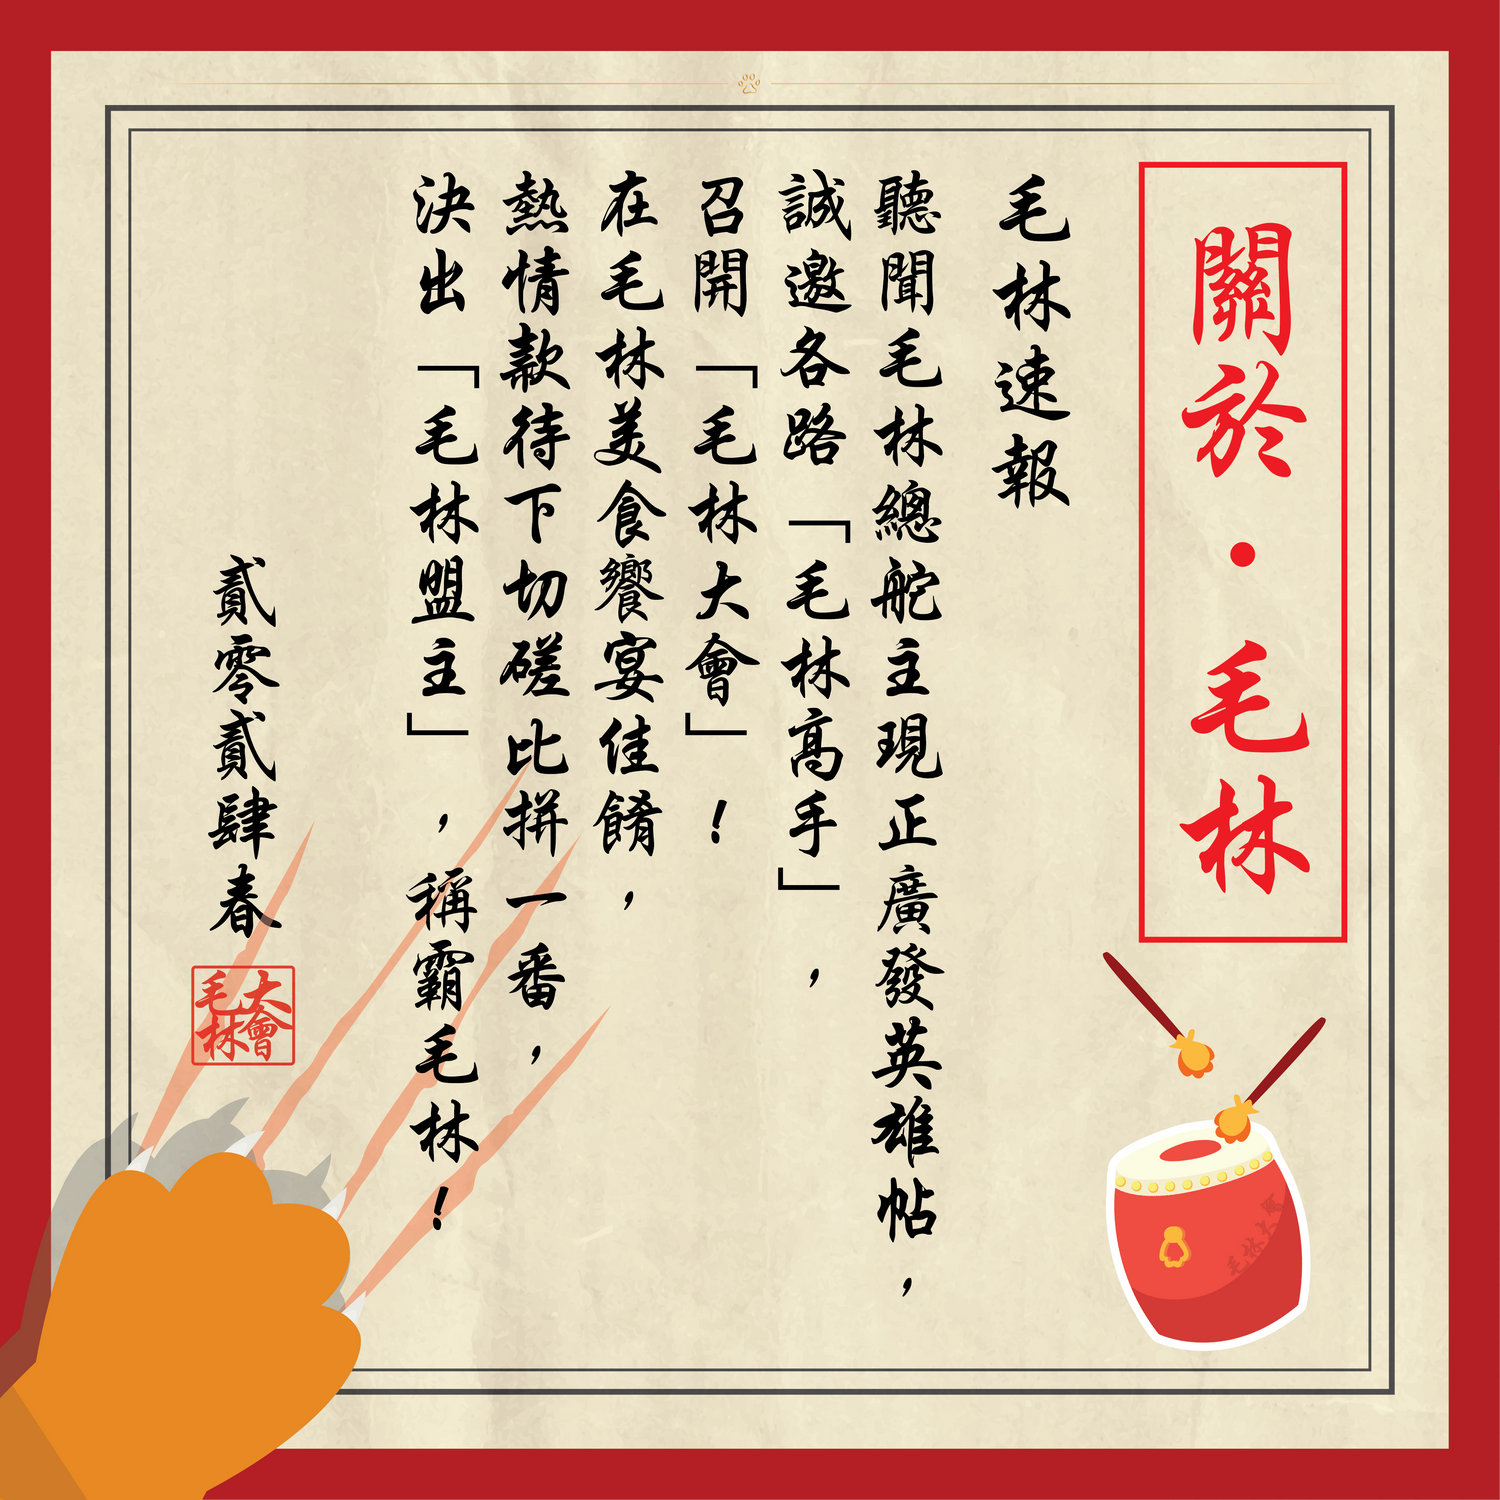 關於・毛林
毛林速報
聽聞毛林總舵主現正廣發英雄帖，
誠邀各路「毛林高手」，
召開「毛林大會」！
在毛林美食饗宴佳餚，
熱情款待下切磋比拼一番，
決出「毛林盟主」，稱霸毛林！
貳零貳肆春
大會
毛林
毛林大會